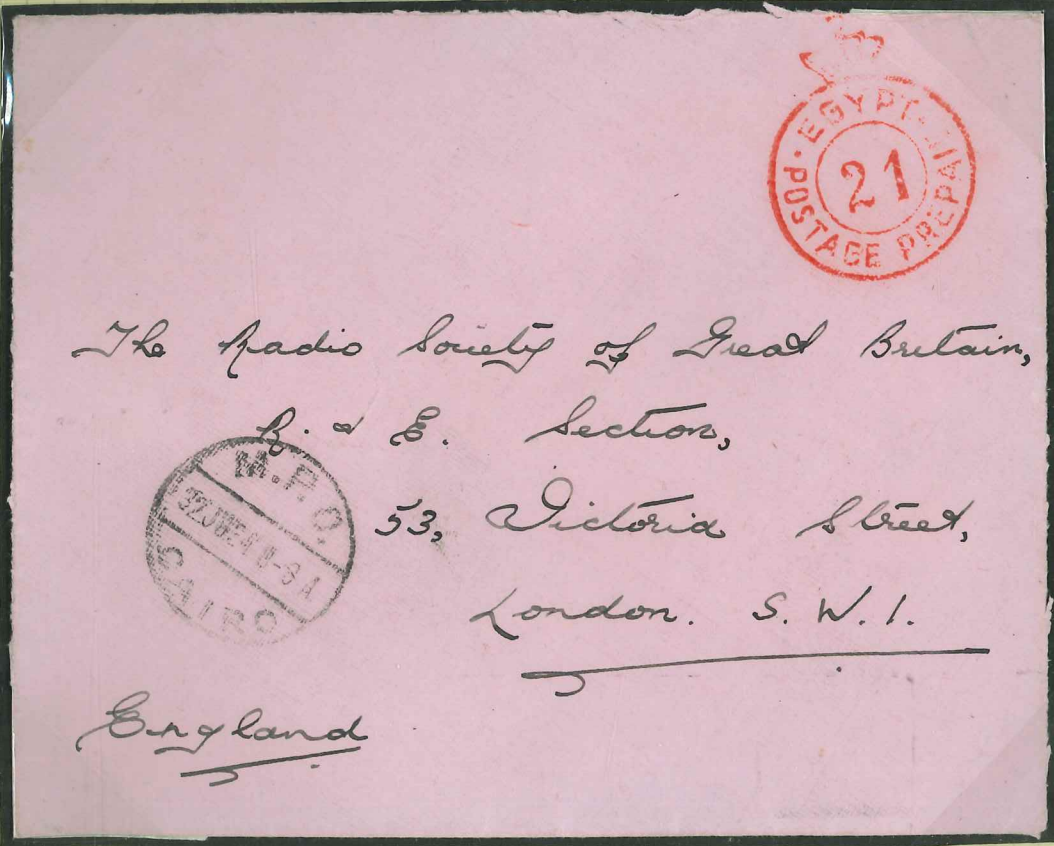 EGYPT
POSTAGE PREPAID
21
The Radio Society of Great Britain,
R. & E. Section,
53, Victoria Street,
London. S. W. 1.
M.P.O.
CAIRO
England